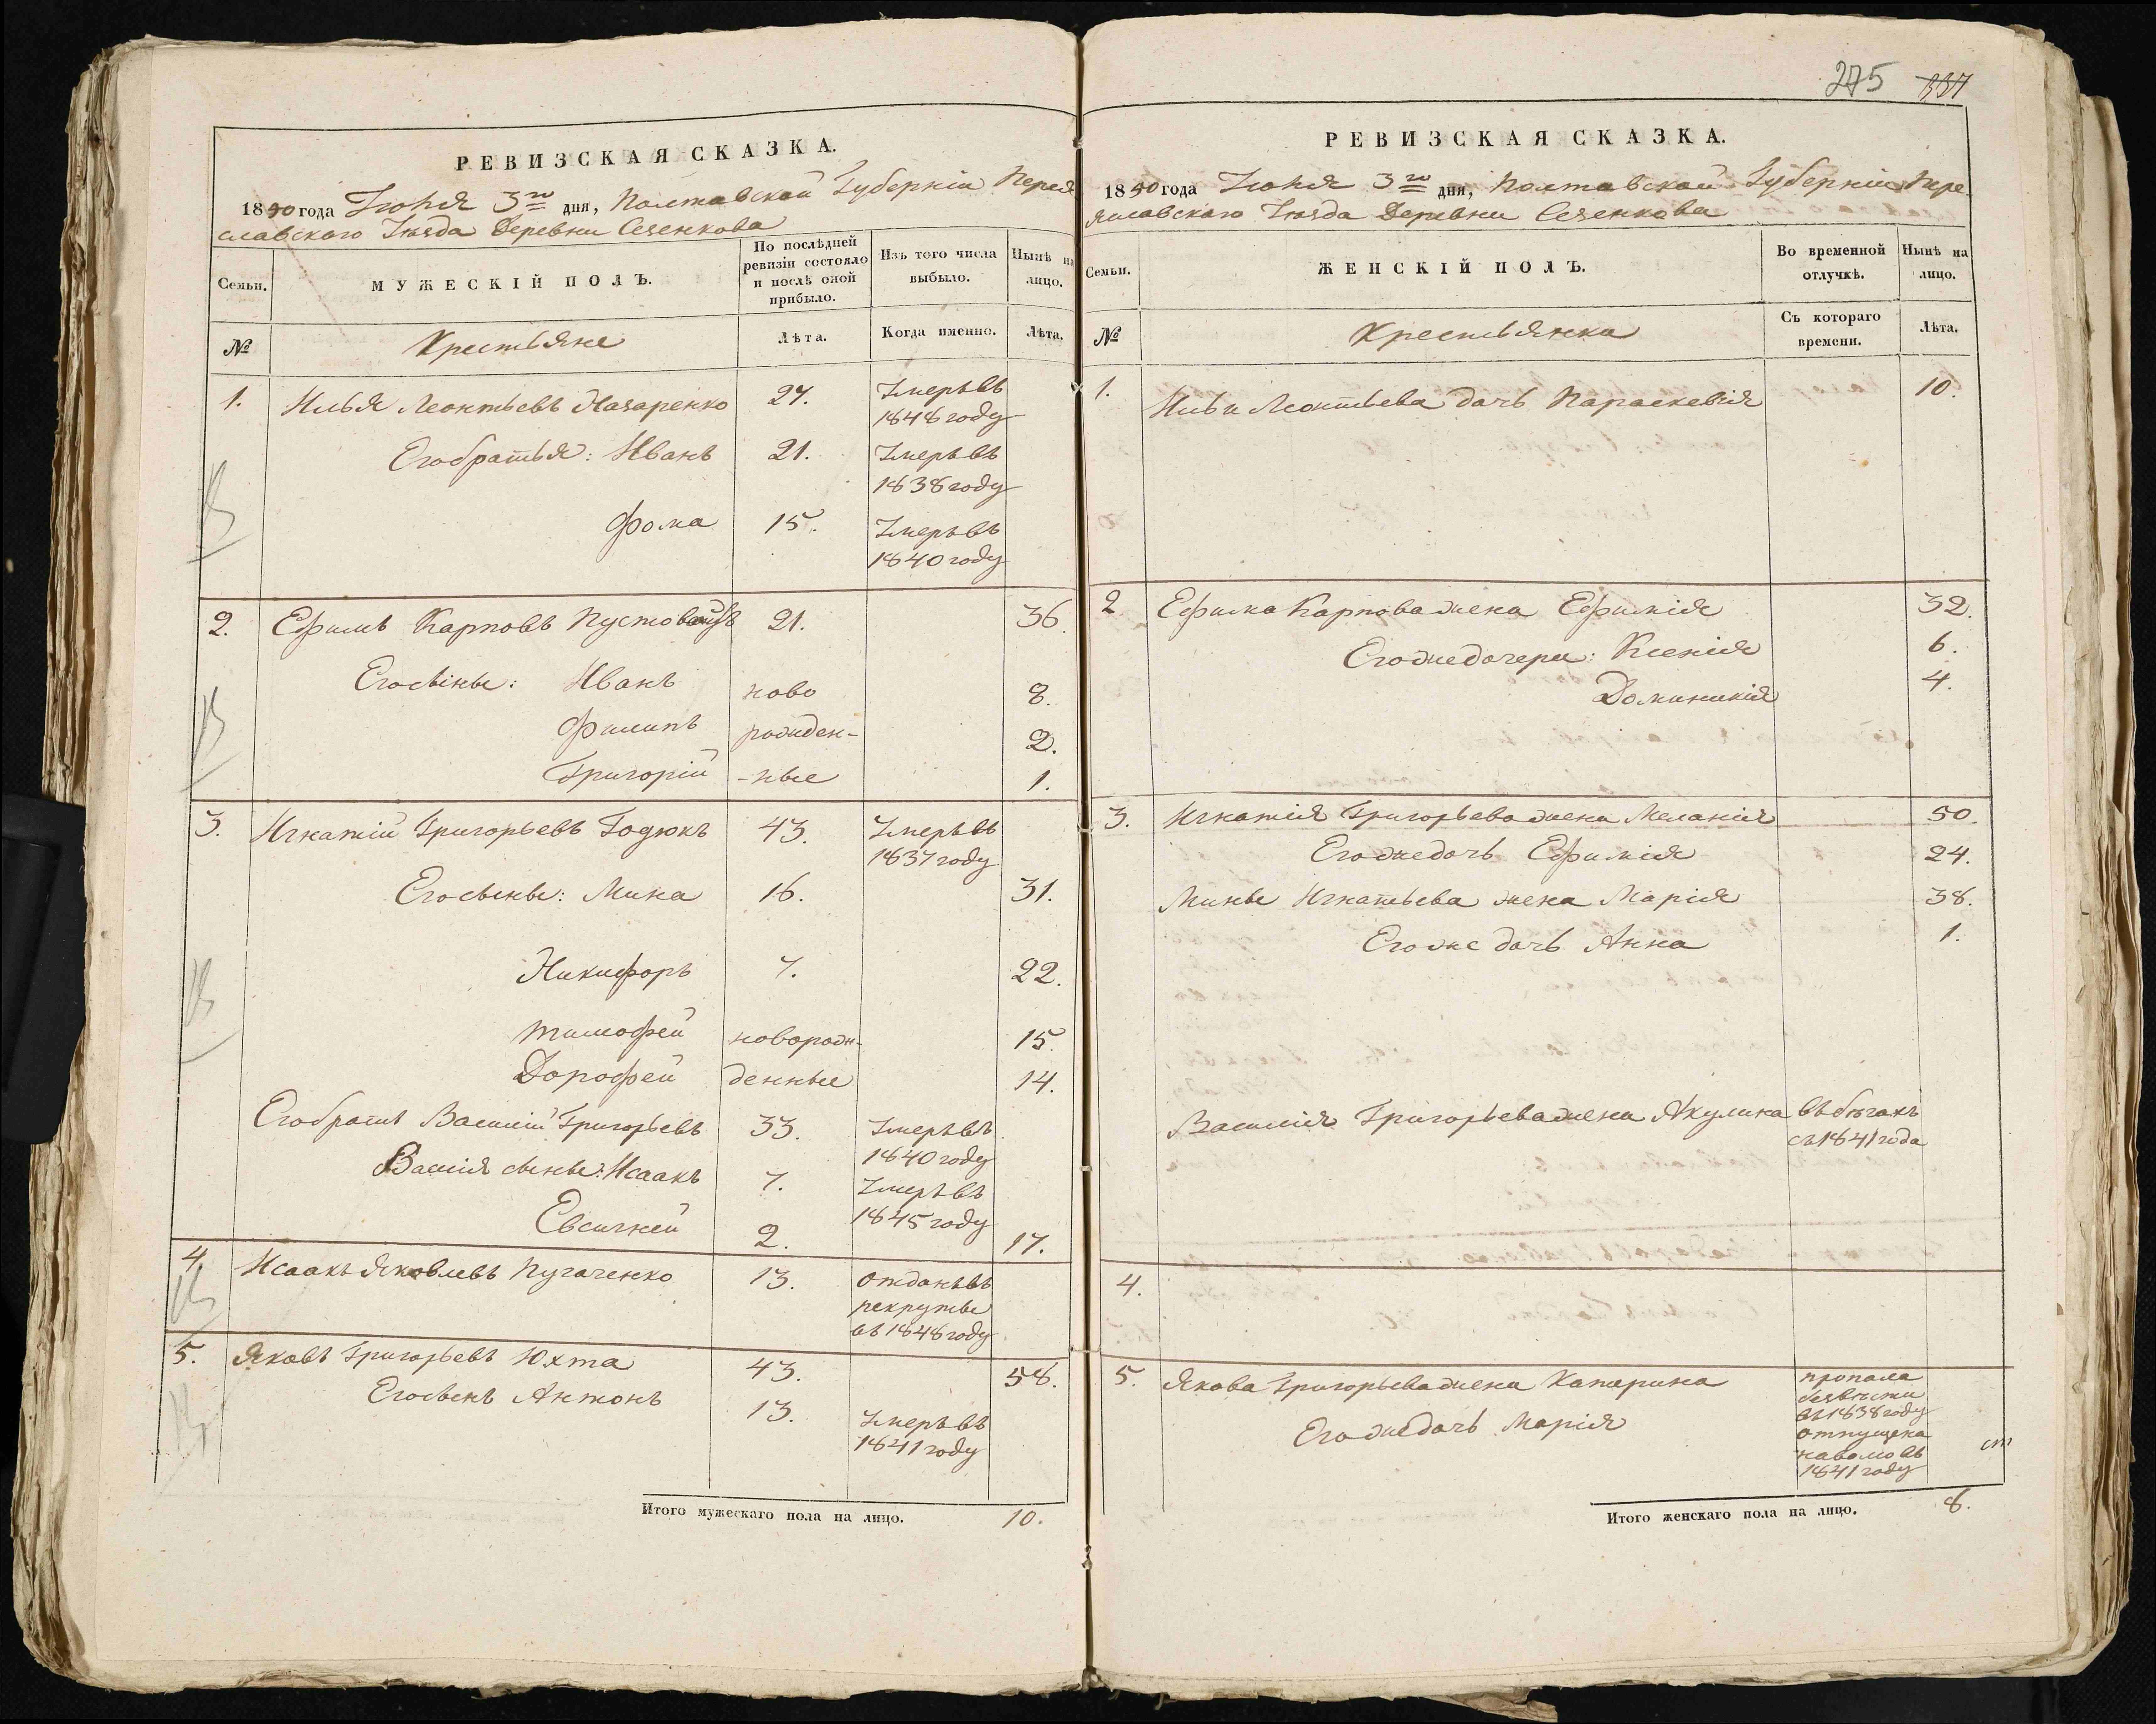 275 337
РЕВИЗСКАЯ СКАЗКА.
1850 года Іюня 3го дня, Полтавской Губерніи Перея
славскаго Уѣзда Деревни Сеченкова
Семьи.
МУЖЕСКІЙ ПОЛЪ.
По послѣдней ревизіи состояло и послѣ оной прибыло.
Изъ того числа выбыло.
Нынѣ на лицо.
№
Крестьяне
Лѣта.
Когда именно.
Лѣта.
1. Илья Леонтьевъ Назаренко 27. Умеръ въ
1848 году
Его братья: Иванъ 21. Умеръ въ
1838 году
Фома 15. Умеръ въ
1840 году
2. Ефимъ Карповъ 21. 36.
Его сыны: Иванъ ново 8.
Филипъ рожден- 2.
Григорій -ные 1.
3. Игнатій Григорьевъ Годюкъ 43. Умеръ въ
1837 году
Его сыны: Мина 16. 31.
Никифоръ 7. 22.
Тимофей новорож- 15.
Дорофей денные 14.
Его братъ Василій Григорьевъ 33. Умеръ въ
1840 году
Васлія сыны: Исаакъ 7. Умеръ въ
1845 году
Евсигней 2. 17.
4. Исаакъ Яковлевъ Пугаченко 13. Отданъ въ
рекруты
въ 1848 году
5. Яковъ Григорьевъ Юхта 43. 58.
Его сынъ Антонъ 13. Умеръ въ
1841 году
Итого мужескаго пола на лицо. 10.
РЕВИЗСКАЯ СКАЗКА.
1850 года Іюня 3го дня, Полтавской Губерніи Пере
яславскаго Уѣзда Деревни Сеченкова
Семьи.
ЖЕНСКІЙ ПОЛЪ.
Во временной отлучкѣ.
Нынѣ на лицо.
№
Крестьянки
Съ котораго времени.
Лѣта.
1. Ильи Леонтьева дочь Параскевія 10.
2 Ефима Карпова жена Ефимія 32.
Его же дочери: Ксенія 6.
Доминикія 4.
3. Игнатія Григорьева жена Меланія 50.
Его же дочь Ефимія 24.
Мины Игнатьева жена Марія 38.
Его же дочь Анна 1.
Василія Григорьева жена Акулина въ бѣгахъ
съ 1841 года
4.
5. Якова Григорьева жена Катарина пропала
безвѣсти
въ 1838 году
Его же дочь Марія отпущена
на волю въ
1841 году
Итого женскаго пола на лицо. 8.